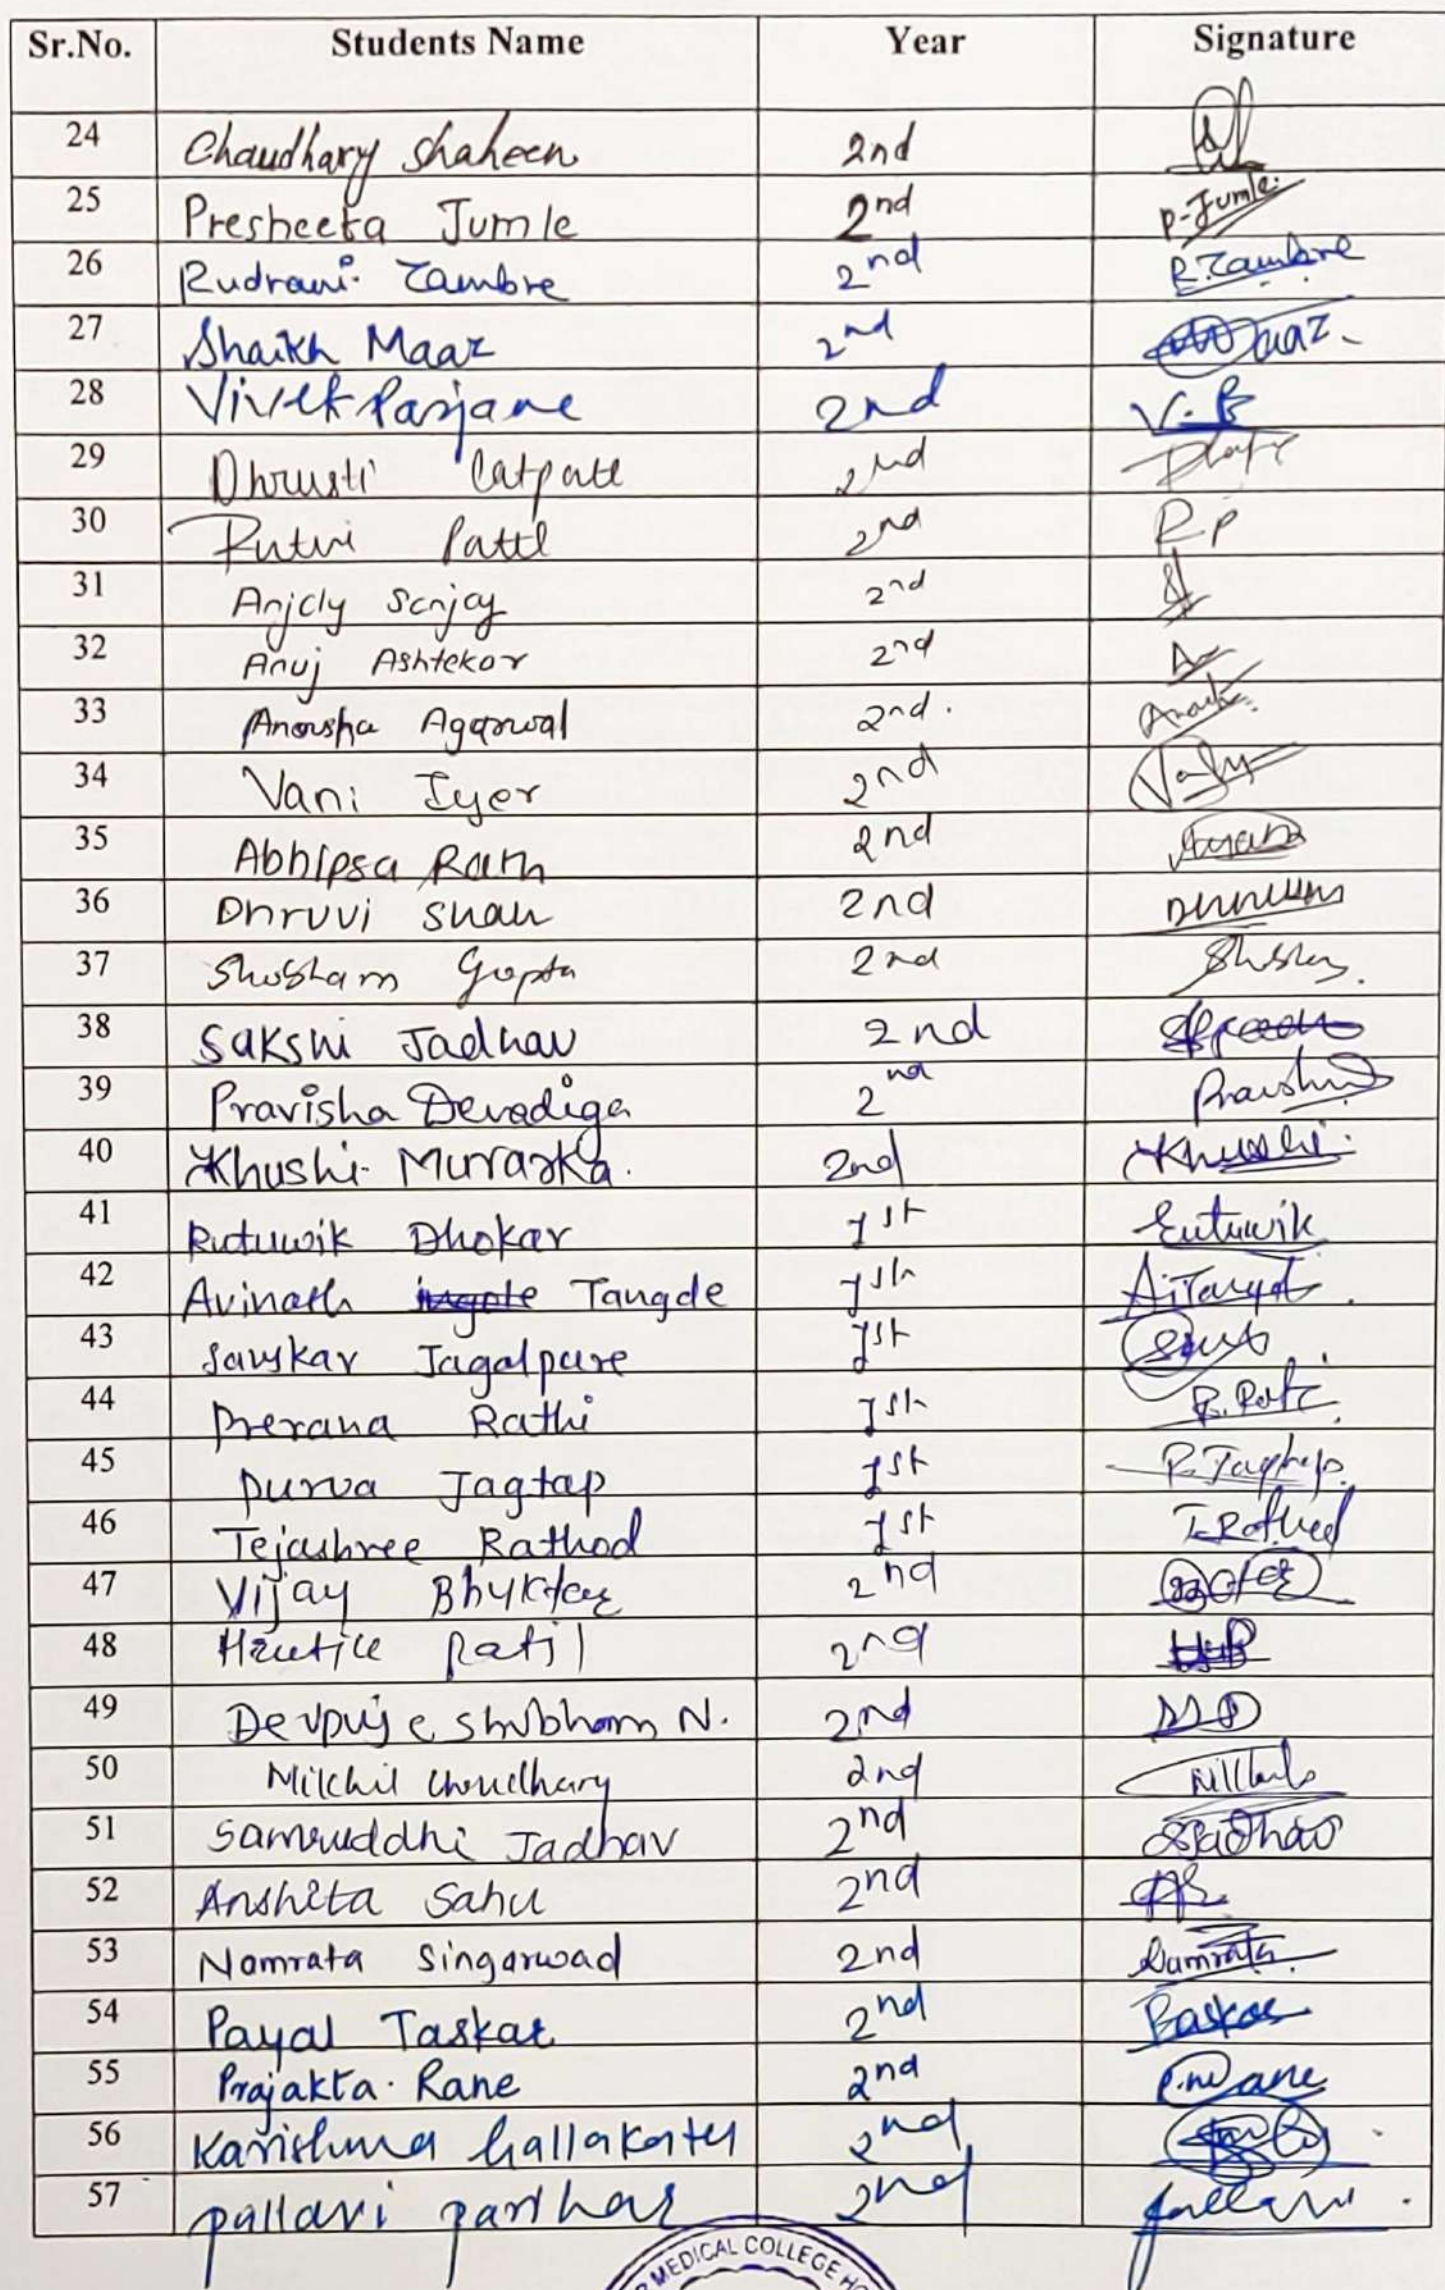 Sr.No. Students Name Year Signature
24 Chaudhary Shaheen 2nd
25 Presheeta Jumle 2nd P-Jumle.
26 Rudrani Zambre 2nd R.Zambre
27 Shaikh Maaz 2nd Maaz.
28 Vivek Parjane 2nd V.P
29 Dhrusti Catpate 2nd
30 Rutvi Patil 2nd RP
31 Anjaly Sanjay 2nd
32 Anuj Ashtekar 2nd
33 Anousha Agarwal 2nd.
34 Vani Iyer 2nd
35 Abhipsa Rath 2nd
36 Dhruvi Shah 2nd
37 Shubham Gupta 2nd
38 Sakshi Jadhav 2nd
39 Pravisha Devadiga 2nd
40 Khushi Murarka. 2nd Khushi.
41 Rutuwik Dhokar 1st Rutuwik
42 Avinash Tangde 1st A.Tangde.
43 Sanskar Jagalpure 1st
44 Prerana Rathi 1st
45 Purva Jagtap 1st P.Jagtap.
46 Tejashree Rathod 1st T.Rathod
47 Vijay 2nd
48 Patil 2nd
49 Devpuje Shubham N. 2nd
50 Choudhary 2nd
51 Samruddhi Jadhav 2nd SJadhav
52 Anshita Sahu 2nd
53 Namrata Singarwad 2nd Namrata
54 Payal Taskar 2nd
55 Prajakta. Rane 2nd
56 Karishma 2nd
57 Pallavi 2nd Pallavi.
MEDICAL COLLEGE